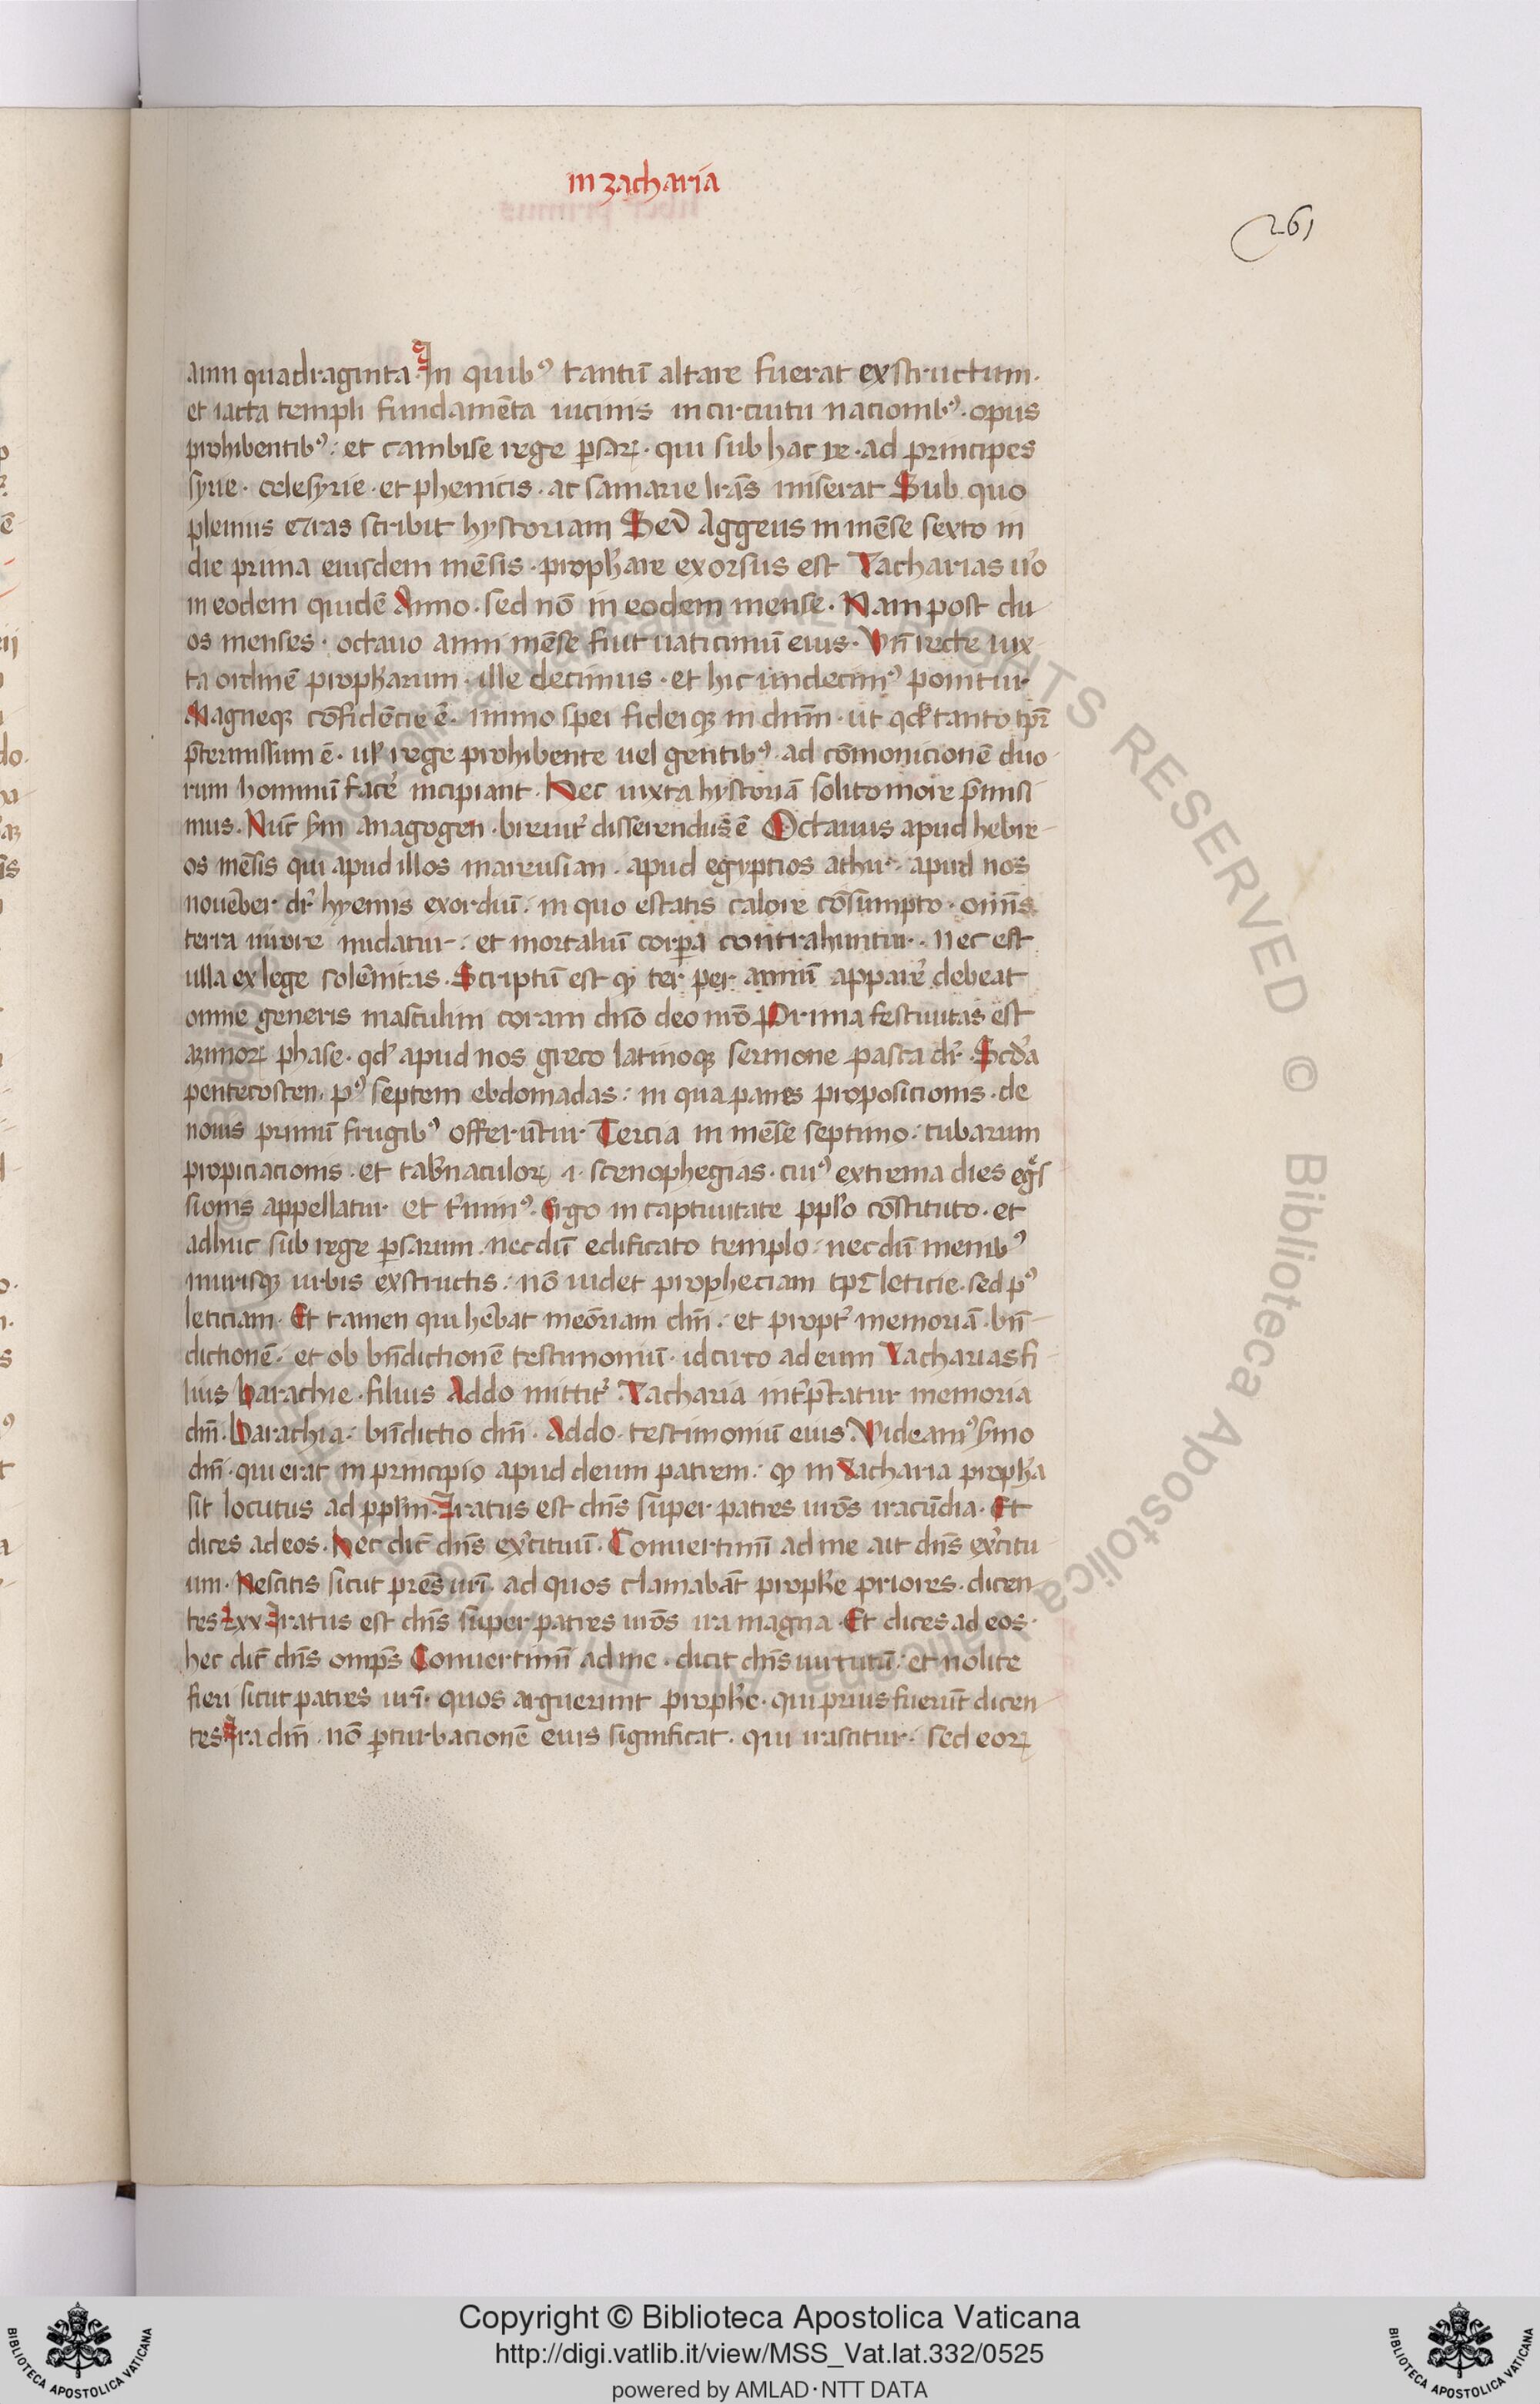 in zacharia
261
anni quadraginta. In quibꝰ tantū altare fuerat exstructum.
et iacta templi fundamēta uicinis in circuitu nacionibꝰ. opus
prohibentibꝰ: et cambise rege ꝑsaꝝ. qui sub hac re. ad principes
syrie. celesyrie. et phenicis. ac samarie lrā̄s miserat Sub quo
plenius ezras scribit hystoriam Sed Aggeus in mēse sexto in
die prima eiusdem mēsis. prophare exorsus est Zacharias ūo
in eodem quidē Anno. sed nō in eodem mense. Nam post du
os menses. octauo anni mēse fiut uaticiniū eius. Vn̄ recte iux
ta ordinē prophetarum. ille decimus. et hic undecimꝰ ponitur
Magneqꝫ cōfidēcie ē. immo spei fideiqꝫ in dn̄m. ut qd̄ tanto tꝑe
p̄termissum ē. ul̄ rege prohibente uel gentibꝰ. ad cōmonicionē duo
rum hominū face incipiant. Hec iuxta hystoriā solito more p̄misi
mus. Nūc s̄m anagogen. breuit̄ disserendus ē Octauus apud hebre
os mēsis qui apud illos mareusian. apud egyptios athur. apud nos
nouēber dr̄ hyemis exordiū. in quo estatis calore cōsumpto. omīs
terra uirore nudatur. et mortaliū corꝑa contrahuntur. Nec est
ulla ex lege solēnitas. Scriptū est qꝫ ter per annū appare debeat
omne generis masculini coram dn̄o deo nr̄o Prima festiuitas est
azimoꝝ phase. qd̄ apud nos greco latinoqꝫ sermone pasca dr̄. Scd̄a
pentecosten. pꝰ septem ebdomadas: in qua panes proposicionis. de
nouis primū frugibꝰ offerūtur Tercia in mēse septimo: tubarum
propiciacionis. et tab̄naculoꝝ .i. scenophegias. cuiꝰ extrema dies egs
sionis appellatur et t̄minꝰ. Ergo in captiuitate ppl̄o cōstituto. et
adhuc sub rege ꝑsarum. necdū edificato templo. necdū menibꝰ
murisqꝫ urbis exstructis. nō uidet propheciam tꝑe leticie. sed pꝰ
leticiam. Et tamen qui hēbat meōriam dn̄i. et propt̄ memoriā bn̄
dictionē. et ob bn̄dictionē testimoniū. idcirco ad eum Zacharias fi
lius barachie. filius Addo mittit̄. Zacharia int̄p̄tatur memoria
dn̄i. barachia. bn̄dictio dn̄i. Addo. testimoniū eius. Videamꝰ s̄mo
dn̄i. qui erat in principio apud deum patrem: qꝫ in Zacharia propha
sit locutus ad ppl̄m. Iratus est dn̄s super patres ur̄os iracūdia. Et
dices ad eos. Hec dic̄ dn̄s ex̄cituū. Conuertimī ad me ait dn̄s ex̄citu
um. Ne sitis sicut pr̄es ur̄i. ad quos clamabāt prophe priores. dicen
tes Lxx Iratus est dn̄s super patres ur̄os ira magna. Et dices ad eos.
hec dic̄ dn̄s omp̄s Conuertimī ad me. dicit dn̄s uirtutū: et nolite
fieri sicut patres ur̄i. quos arguerunt prophe. qui prius fuerūt dicen
tes Ira dn̄i. nō ꝑturbacionē eius significat. qui irascitur. sed eoꝝ
Copyright © Biblioteca Apostolica Vaticana
http://digi.vatlib.it/view/MSS_Vat.lat.332/0525
powered by AMLAD·NTT DATA